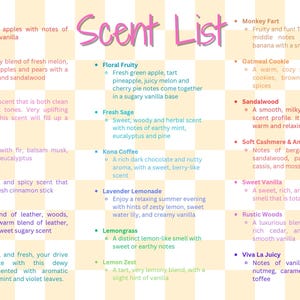 Scent List
apples with notes of
vanilla
blend of fresh melon,
apples and pears with a
sandalwood
scent that is both clean
tones. Very uplifting
this scent will fill up a
with fir, balsam musk,
eucalyptus
and spicy scent that
fresh cinnamon stick
blend of leather, woods,
warm blend of leather,
sweet sugary scent
and fresh, your drive
with dewy
accented with aromatic
mint and violet leaves.
Floral Fruity
Fresh green apple, tart
pineapple, juicy melon and
cherry pie notes come together
in a sugary vanilla base
Fresh Sage
Sweet, woody and herbal scent
with notes of earthy mint,
eucalyptus and pine
Kona Coffee
A rich dark chocolate and nutty
aroma, with a sweet, berry-like
scent
Lavender Lemonade
Enjoy a relaxing summer evening
with hints of zesty lemon, sweet
water lily, and creamy vanilla
Lemongrass
A distinct lemon-like smell with
sweet or earthy notes
Lemon Zest
A tart, very lemony blend, with a
slight hint of vanilla
Monkey Fart
Fruity and fun! T
middle notes
banana with a sm
Oatmeal Cookie
A warm, cozy
cookies, brown
spices
Sandalwood
A smooth, milky
scent profile. It
warm and relaxin
Soft Cashmere & Am
Notes of berg
sandalwood, pa
cassis, and moss
Sweet Vanilla
A sweet, rich, an
smell that is insta
Rustic Woods
A luxurious blen
rich cedar, swe
and smooth
Viva La Juicy
Notes of vanill
nutmeg, caram
toffee